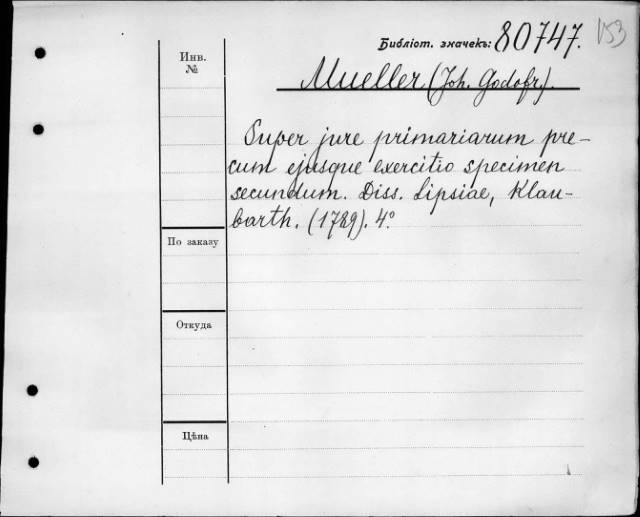 Библіот. значекъ: 80747. 153
Инв.
№
Mueller (Joh. Godofr.).
Super jure primariarum pre-
cum ejusque exercitio specimen
secundum. Diss. Lipsiae, Klau-
barth. (1789). 4°
По заказу
Откуда
Цѣна